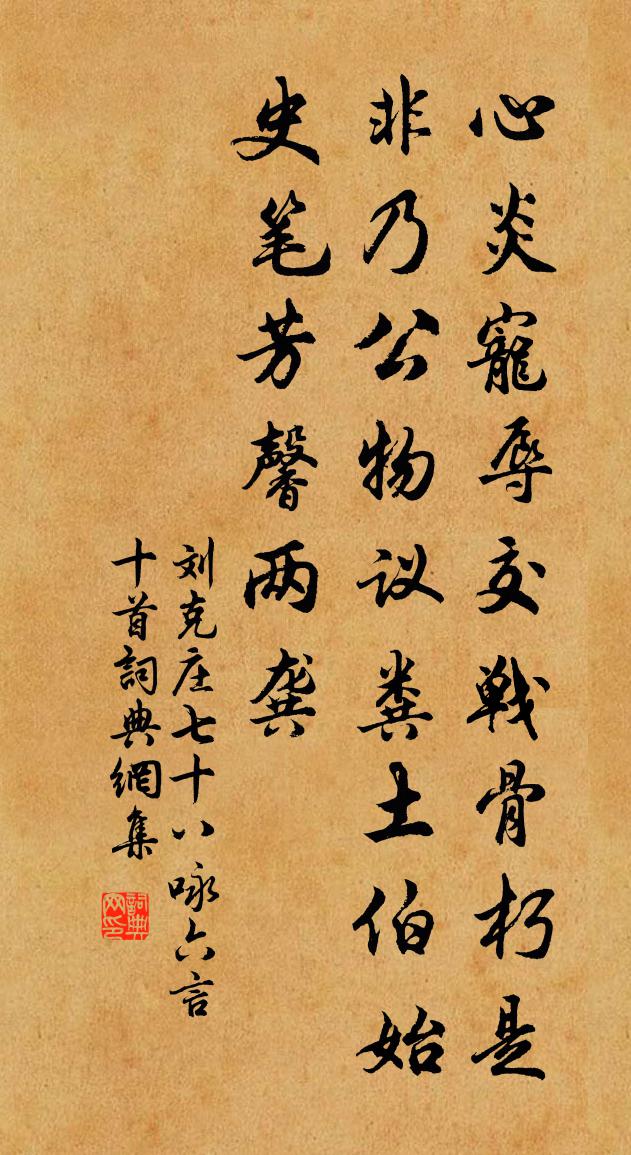 心炎寵辱交戰骨朽是
非乃公物议粪土伯始
史笔芳馨两龚
刘克庄七十八咏六言
十首詞典網集
詞典
网印